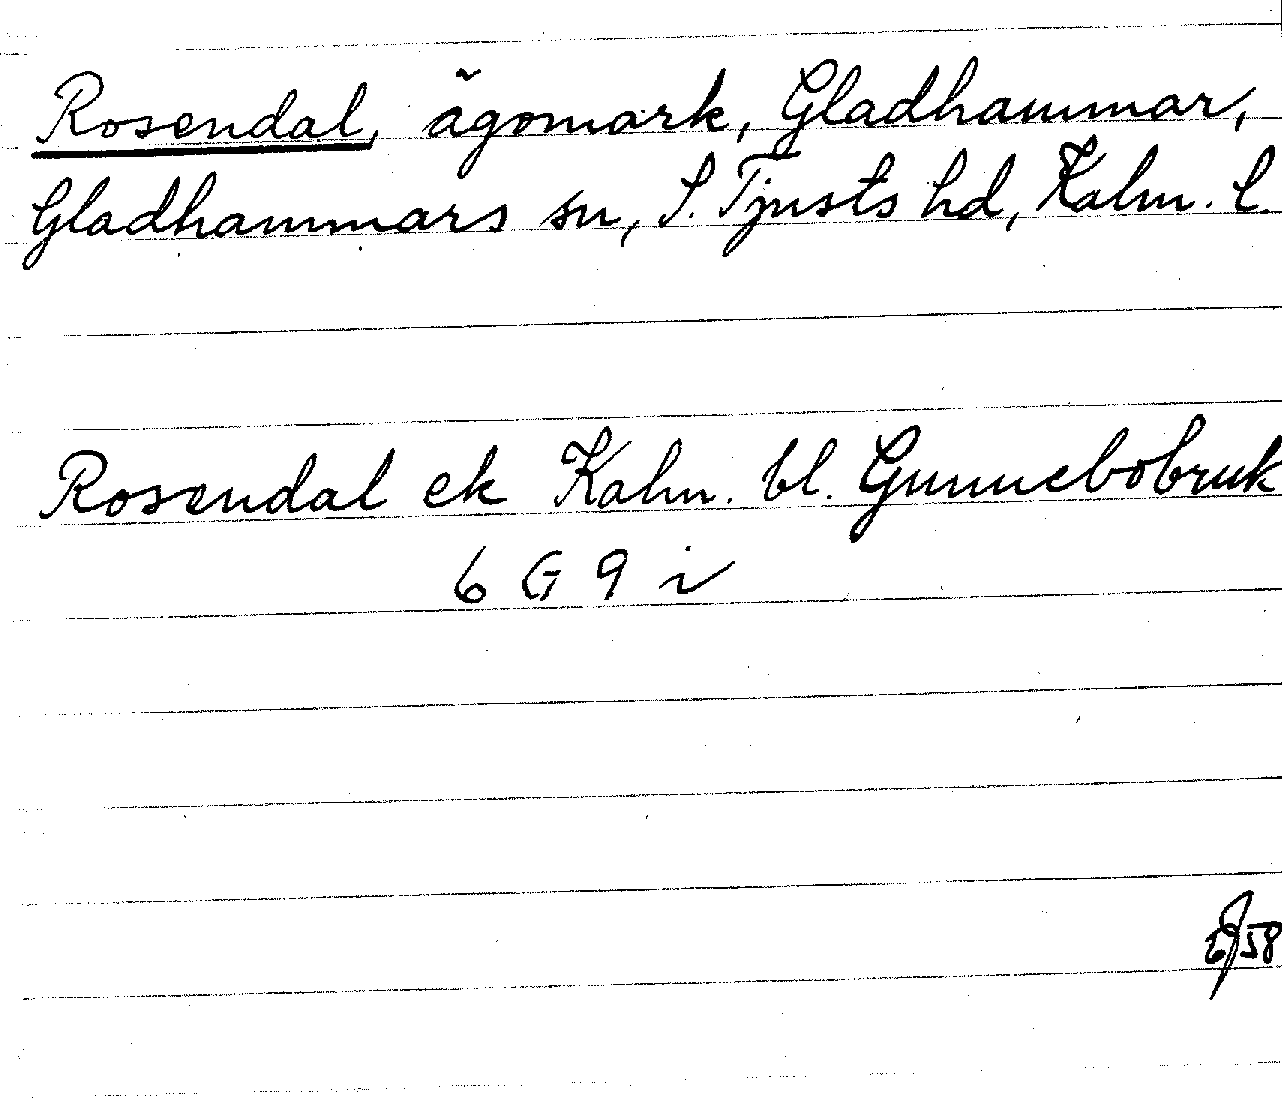 Rosendal, ägomark, Gladhammar,
Gladhammars sn, S. Tjusts hd, Kalm. l
Rosendal ek Kalm. bl. Gunnebobruk
6 G 9 i
58